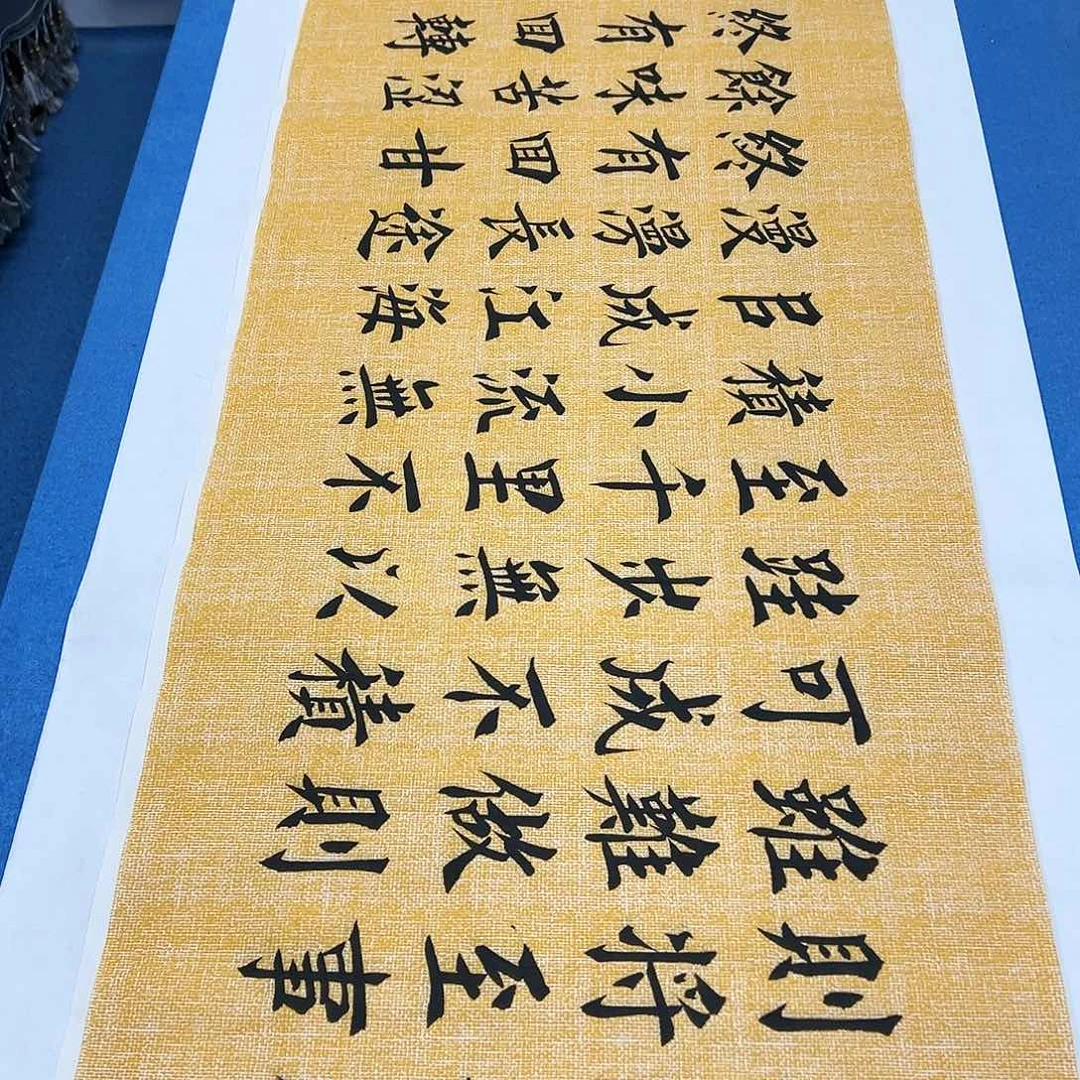 則將至事
雖難做則
可成不積
跬步無以
至千里不
積小流無
㠯成江海
漫漫長途
終有回甘
餘味苦涩
終有回轉